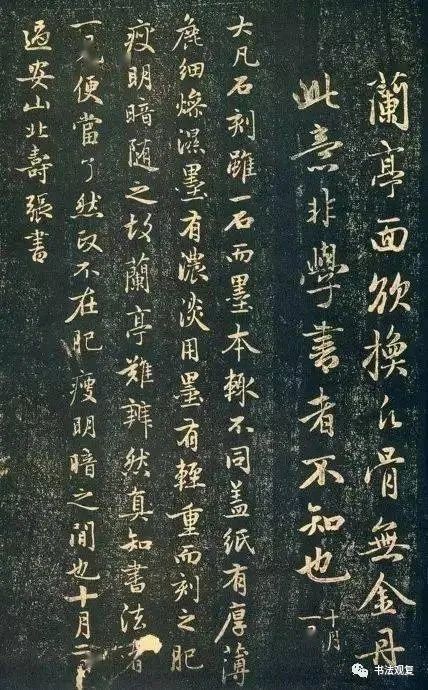 蘭亭面欲換凡骨無金丹
此意非學書者不知也
十月
一
大凡石刻雖一石而墨本輒不同盖紙有厚薄
麁細燥濕墨有濃淡用墨有輕重而刻之肥
瘦明暗随之故蘭亭難辨然真知書法者
一見便當了然政不在肥瘦明暗之間也十月二
過安山北壽張書
书法观复